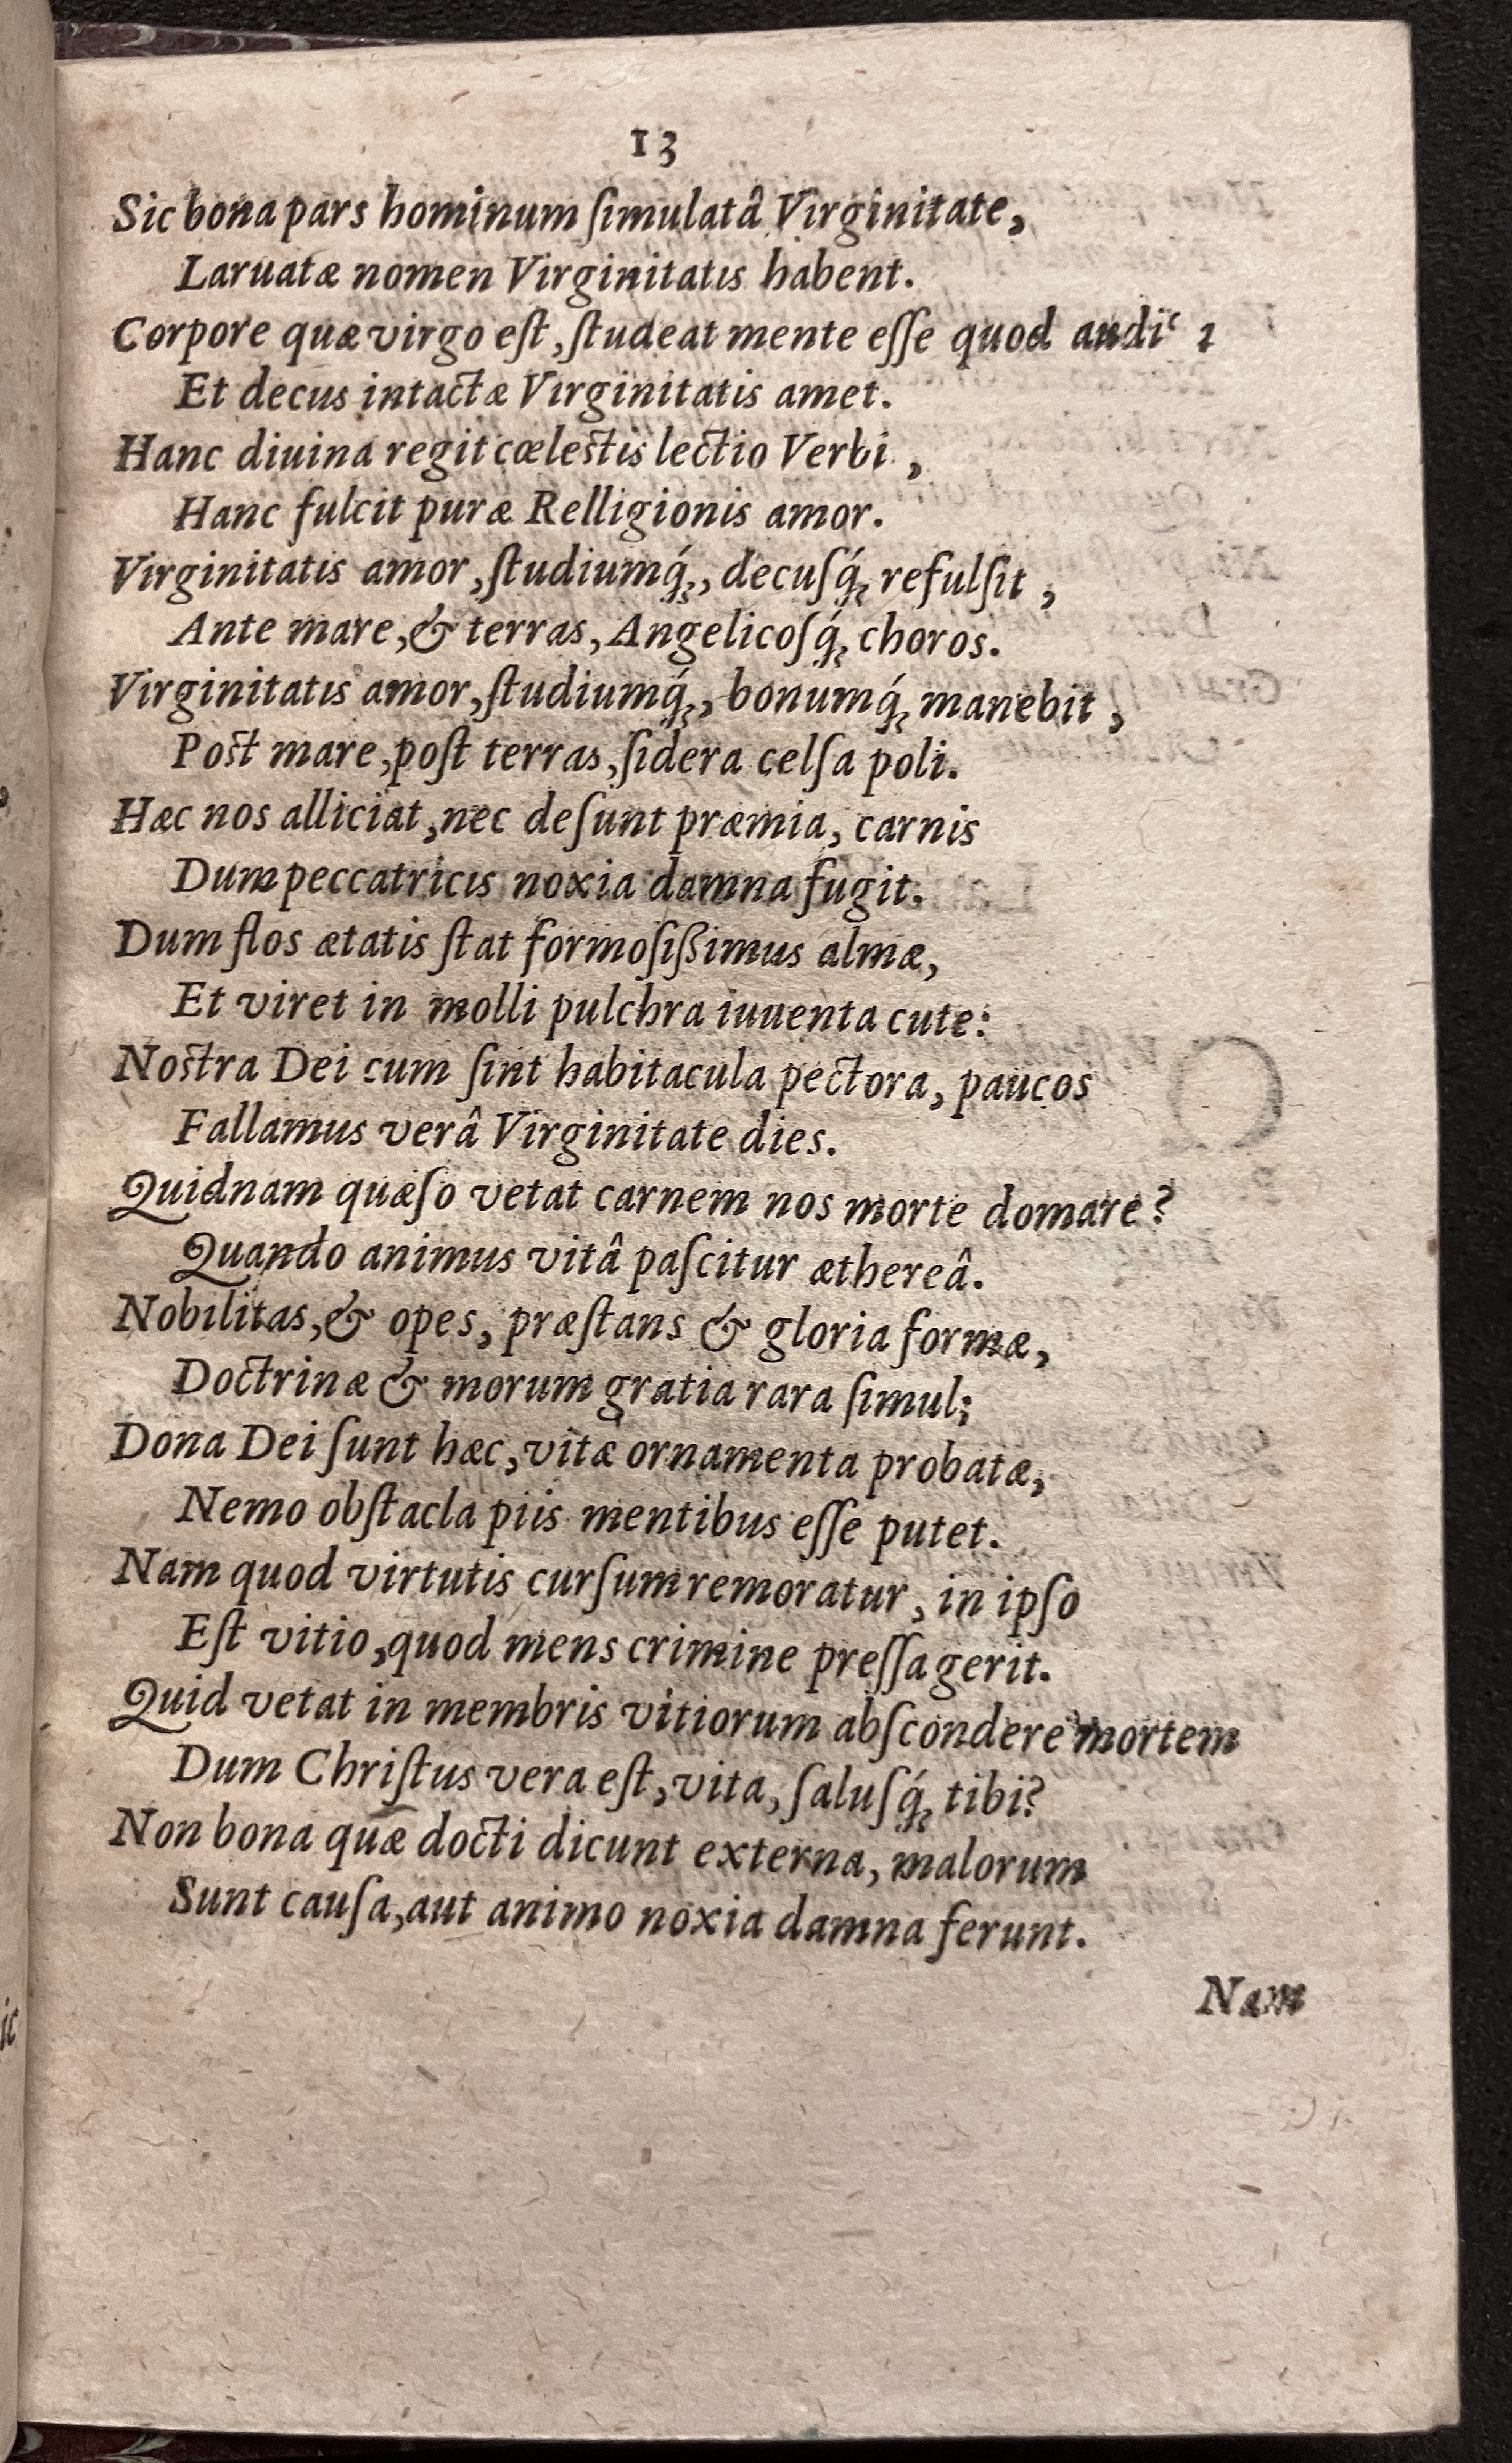 13
Sic bona pars hominum ſimulatâ Virginitate,
Laruatæ nomen Virginitatis habent.
Corpore quæ virgo eſt, ſtudeat mente eſſe quod
Et decus intactæ Virginitatis amet.
Hanc diuina regit cœleſtis lectio Verbi,
Hanc fulcit puræ Relligionis amor.
Virginitatis amor, ſtudiumq́;, decuſq́; refulſit,
Ante mare, & terras, Angelicoſq́; choros.
Virginitatis amor, ſtudiumq́;, bonumq́; manebit,
Poſt mare, poſt terras, ſidera celſa poli.
Hæc nos alliciat, nec deſunt præmia, carnis
Dum peccatricis noxia damna fugit.
Dum flos ætatis ſtat formoſißimus almæ,
Et viret in molli pulchra iuuenta cute:
Noſtra Dei cum ſint habitacula pectora, paucos
Fallamus verâ Virginitate dies.
Quidnam quæſo vetat carnem nos morte domare?
Quando animus vitâ paſcitur æthereâ.
Nobilitas, & opes, præſtans & gloria formæ,
Doctrinæ & morum gratia rara ſimul;
Dona Dei ſunt hæc, vitæ ornamenta probatæ,
Nemo obſtacla piis mentibus eſſe putet.
Nam quod virtutis curſum remoratur, in ipſo
Eſt vitio, quod mens crimine preſſa gerit.
Quid vetat in membris vitiorum abſcondere mortem
Dum Chriſtus vera eſt, vita, ſaluſq́; tibi?
Non bona quæ docti dicunt externa, malorum
Sunt cauſa, aut animo noxia damna ferunt.
Nam